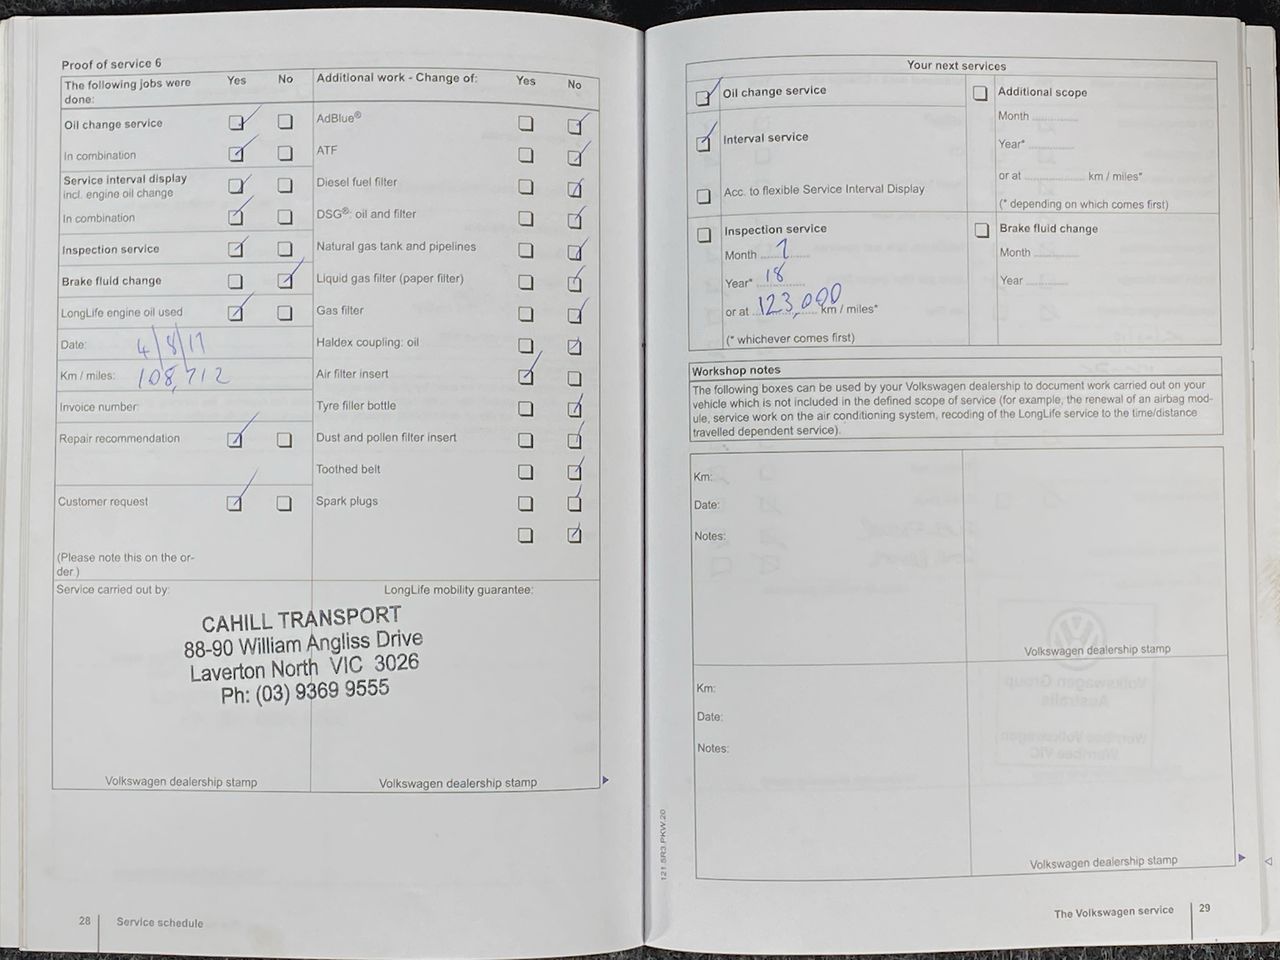 Proof of service 6
The following jobs were done: Yes No
Oil change service
In combination
Service interval display
incl. engine oil change
In combination
Inspection service
Brake fluid change
LongLife engine oil used
Date: 4/8/17
Km / miles: 108,712
Invoice number:
Repair recommendation
Customer request
(Please note this on the or-
der )
Additional work - Change of: Yes No
AdBlue®
ATF
Diesel fuel filter
DSG®: oil and filter
Natural gas tank and pipelines
Liquid gas filter (paper filter)
Gas filter
Haldex coupling: oil
Air filter insert
Tyre filler bottle
Dust and pollen filter insert
Toothed belt
Spark plugs
Service carried out by:
LongLife mobility guarantee:
CAHILL TRANSPORT
88-90 William Angliss Drive
Laverton North VIC 3026
Ph: (03) 9369 9555
Volkswagen dealership stamp
Volkswagen dealership stamp
28 Service schedule
Your next services
Oil change service
Interval service
Acc. to flexible Service Interval Display
Additional scope
Month ............
Year* ............
or at ............ km / miles*
(* depending on which comes first)
Inspection service
Month 7
Year* 18
or at 123,000 km / miles*
(* whichever comes first)
Brake fluid change
Month ............
Year ............
Workshop notes
The following boxes can be used by your Volkswagen dealership to document work carried out on your
vehicle which is not included in the defined scope of service (for example, the renewal of an airbag mod-
ule, service work on the air conditioning system, recoding of the LongLife service to the time/distance
travelled dependent service).
Km:
Date:
Notes:
Volkswagen dealership stamp
Km:
Date:
Notes:
Volkswagen dealership stamp
121.5R3.PKW.20
The Volkswagen service 29